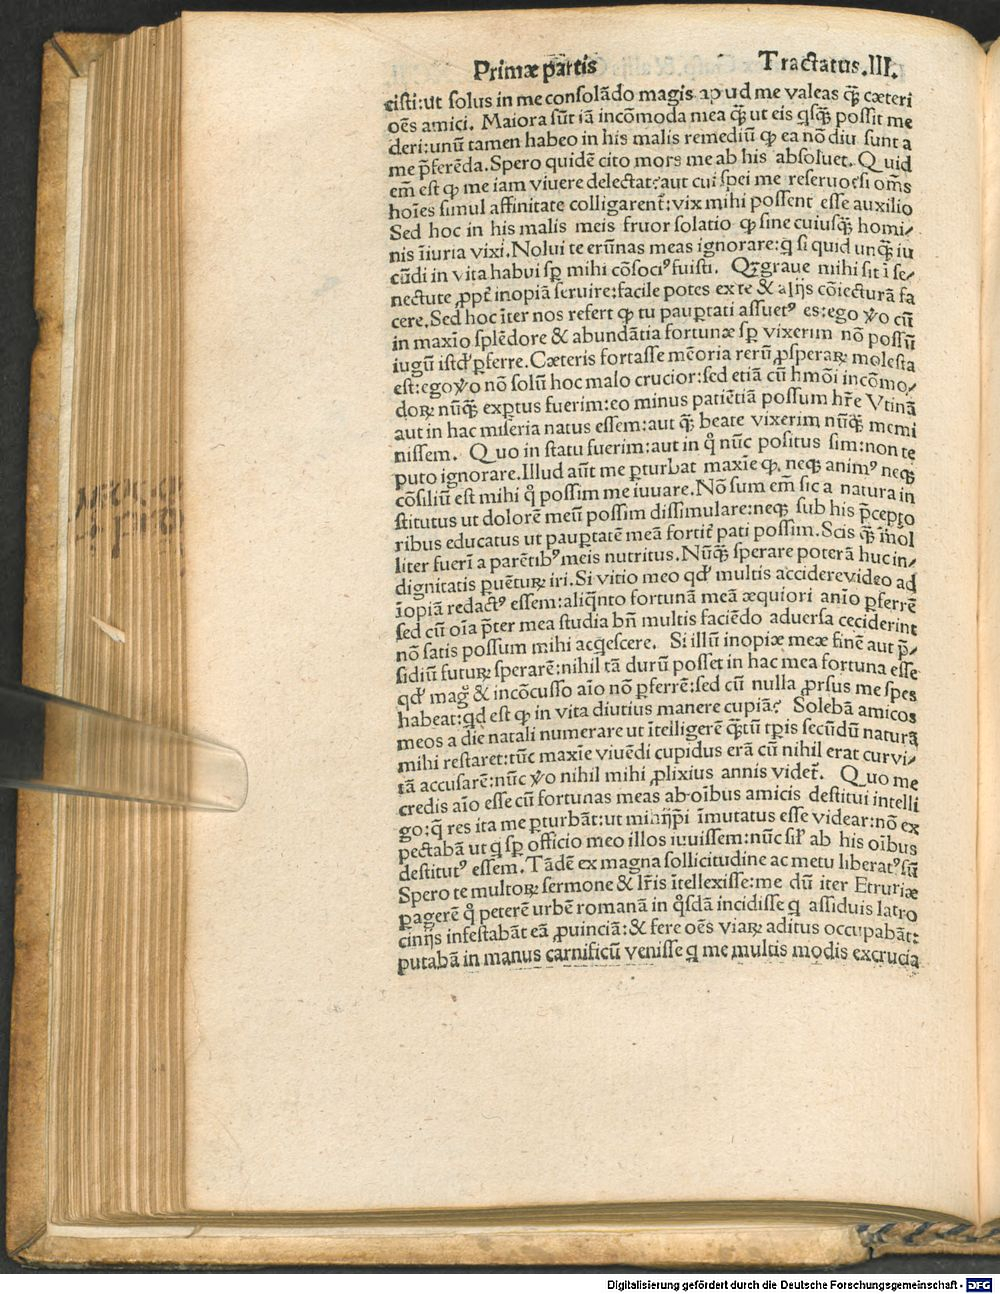 Primæ partis Tractatus.III.
cisti:ut solus in me consolãdo magis apud me valeas q̃ꝫ cæteri
oẽs amici. Maiora sũt iã incõmoda mea q̃ꝫ ut eis q̃sq̃ꝫ possit me
deri:unũ tamen habeo in his malis remediũ ꝙ ea nõ diu sunt a
me p̃ferẽda.Spero quidẽ cito mors me ab his absoluet. Quid
em̃ est ꝙ me iam viuere delectat:aut cui spei me reseruo:si om̃s
hoĩes simul affinitate colligarent᷑:vix mihi possent esse auxilio
Sed hoc in his malis meis fruor solatio ꝙ sine cuiusq̃ꝫ homi/
nis ĩiuria vixi.Nolui te erũnas meas ignorare:q̃ si quid unq̃ꝫ iu
cũdi in vita habui sp̱ mihi cõsociꝰ fuisti. Qꝫ graue mihi sit ĩ se/
nectute ꝓpt᷑ inopiã seruire:facile potes ex te & alijs cõiecturã fa
cere.Sed hoc ĩter nos refert ꝙ tu pauꝑtati assuetꝰ es:ego v̊o cũ
in maxĩo splẽdore & abundãtia fortunæ sp̱ vixerim nõ possũ
iugũ istđ ꝑferre.Cæteris fortasse mẽoria rerũ ꝓsperaꝝ molesta
est:ego v̊o nõ solũ hoc malo crucior:sed etiã cũ hmõi incõmo/
doꝝ nũq̃ꝫ exꝑtus fuerim:eo minus patiẽtiã possum hr̃e Vtinã
aut in hac miseria natus essem:aut q̃ꝫ beate vixerim nũq̃ꝫ memi
nissem. Quo in statu fuerim:aut in q̊ nũc positus sim:non te
puto ignorare.Illud aũt me ꝑturbat maxĩe ꝙ neqꝫ animꝰ neqꝫ
cõsiliũ est mihi q̊ possim me iuuare.Nõ sum em̃ sic a natura in
stitutus ut dolorẽ meũ possim dissimulare:neqꝫ sub his p̃cepto
ribus educatus ut pauꝑtatẽ meã fortit᷑ pati possim.Scis q̃ꝫ m̃ol
liter fuerĩ a parẽtibꝰ meis nutritus.Nũq̃ꝫ sperare poterã huc in/
dignitatis ꝑuẽtuꝝ iri.Si vitio meo qđ multis accidere video ad
ĩopiã redactꝰ essem:aliq̃nto fortunã meã æquiori anĩo ꝑferrẽ
sed cũ oĩa p̃ter mea studia bñ multis faciẽdo aduersa ceciderint
nõ satis possum mihi acq̃escere. Si illũ inopiæ meæ finẽ aut p̃/
sidiũ futuꝝ sperarẽ:nihil tã durũ posset in hac mea fortuna esse
qđ mag̃ & incõcusso aĩo nõ ꝑferrẽ:sed cũ nulla ꝓrsus me spes
habeat:q̃d est ꝙ in vita diutius manere cupiã? Solebã amicos
meos a die natali numerare ut ĩtelligerẽ q̃ꝫtũ tp̃is secũdũ naturã
mihi restaret:tũc maxĩe viuẽdi cupidus erã cũ nihil erat cur vi/
tã accusarẽ:nũc v̊o nihil mihi ꝓlixius annis videt᷑. Quo me
credis aĩo esse cũ fortunas meas ab oĩbus amicis destitui intelli
go:q̃ res ita me ꝑturbãt:ut mihijp̃i ĩmutatus esse videar:nõ ex
pectabã ut q̃ sp̱ officio meo illos iuuissem:nũc sił ab his oĩbus
destitutꝰ essem.Tãdẽ ex magna sollicitudine ac metu liberatꝰ sũ
Spero te multoꝝ sermone & lr̃is ĩtellexisse:me dũ iter Etruriæ
ꝑagerẽ q̊ peterẽ urbẽ romanã in q̊sdã incidisse q̃ assiduis latro
cinijs infestabãt eã ꝓuinciã:& fere oẽs viaꝝ aditus occupabãt:
putabã in manus carnificũ venisse q̃ me multis modis excrucia
Digitalisierung gefördert durch die Deutsche Forschungsgemeinschaft - DFG